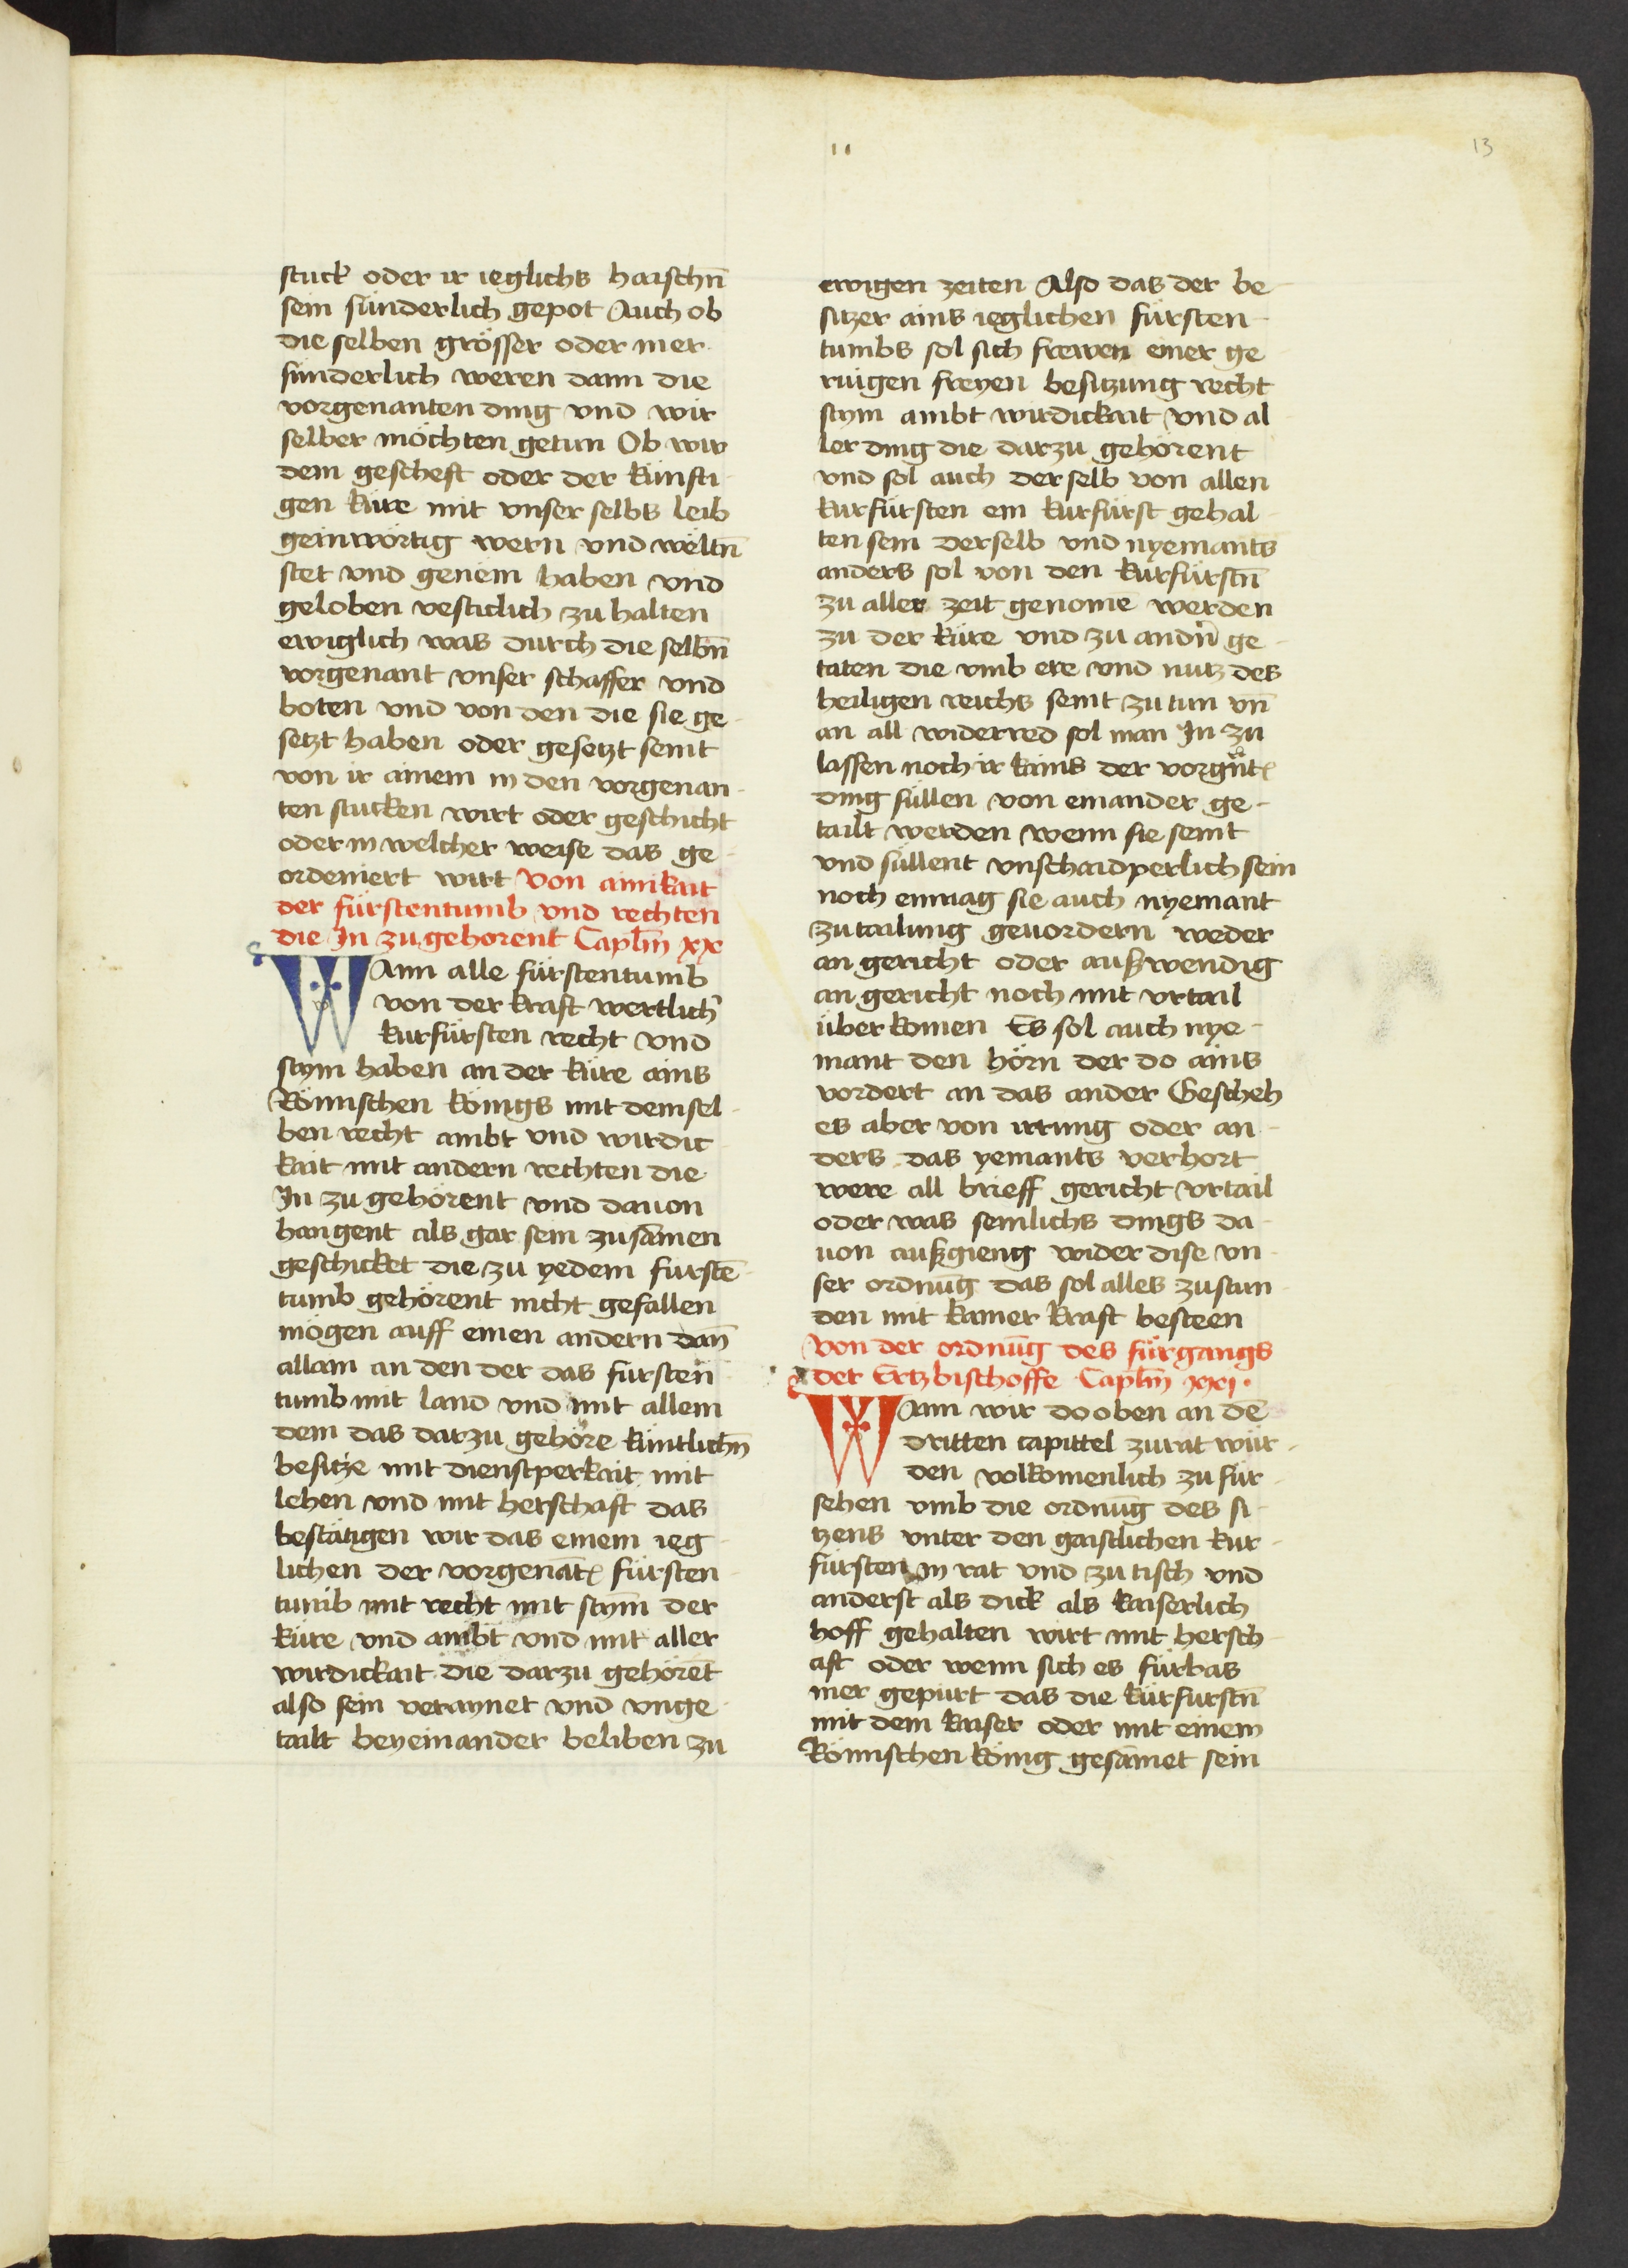 11
13
stuck oder ir ieglichs haischn̄
sein sunderlich gepot Auch ob
die selben grösser oder mer
sunderlich weren dann die
vorgenanten ding vnd wir
selber möchten getun Ob wir
dem gescheft oder der künfti
gen küre mit vnser selbs leib
geinwörtig wern vnd weltn̄
stet vnd genem haben vnd
geloben vesticlich zu halten
ewiglich was durch die selbn̄
vorgenant vnser schaffer vnd
boten vnd von den die sie ge
setzt haben oder gesetzt seint
von ir ainem in den vorgenan
ten stucken wirt oder geschicht
oder in welcher weise das ge
ordeniert wirt von ainikait
der fürstentumb vnd rechten
die In zu gehorent Caplm̄ xx
Wann alle fürstentumb
von der kraft wertlich̄
kurfürsten recht vnd
stym haben an der küre ains
Römischen königs mit demsel
ben recht ambt vnd wirdic
kait mit andern rechten die
In zu gehörent vnd dauon
hangent als gar sein zusāmen
geschicket die zu yedem furstē
tumb gehörent nicht gefallen
mögen auff einen andern dan̄
allain an den der das fursten
tumb mit land vnd mit allem
dem das darzu gehöre küntlichn̄
besitze mit dienstperkait mit
lehen vnd mit herschaft das
bestätigen wir das einem ieg
lichen der vorgenāt̄ fürsten
tumb mit recht mit stym̄ der
küre vnd ambt vnd mit aller
wirdickait die darzu gehörēt
also sein veraynet vnd vnge
tailt beyeinander beliben zu
ewigen zeiten Also das der be
sitzer ains ieglichen fürsten
tumbs sol sich frewen einer ge
ruigen freyen besitzung recht
stym ambt wirdickait vnd al
ler ding die darzu gehörent
vnd sol auch der selb von allen
kurfürsten ein kurfürst gehal
ten sein derselb vnd nyemants
anders sol von den kurfürstn̄
zu aller zeit genomē werden
zu der küre vnd zu andn̄ ge
taten die vmb ere vnd nutz des
heiligen reichs seint zu tun vn̄
an all widerred sol man In zu
lassen noch ir kains der vorgn̄t̄
ding sullen von einander ge
tailt werden wenn sie seint
vnd sullent vnschaidperlich sein
noch enmag sie auch nyemant
zu tailung geuordern weder
an gericht oder außwendig
an gericht noch mit vrtail
überkomen Es sol auch nye
mant den hörn der do ains
vordert an das ander Gescheh
es aber von irrung oder an
ders das yemants verhort
were all brieff gericht vrtail
oder was semlichs dings da
uon außgieng wider dise vn
ser ordnūg das sol alles zustun
den mit kainer kraft besteen
von der ordnūg des fürgangs
der Ertzbischoffe Caplm̄ xxj.
Wann wir do oben an dē
dritten capittel zurat wur
den volkomenlich zu fur
sehen vmb die ordnūg des si
tzens vnter den gaistlichen kur
fürsten in rat vnd zu tisch vnd
anderst als dick als kaiserlich
hoff gehalten wirt mit hersch
aft oder wenn sich es fürbas
mer gepürt das die kürfurstn̄
mit dem kaiser oder mit einem
Römischen könig gesāmet sein